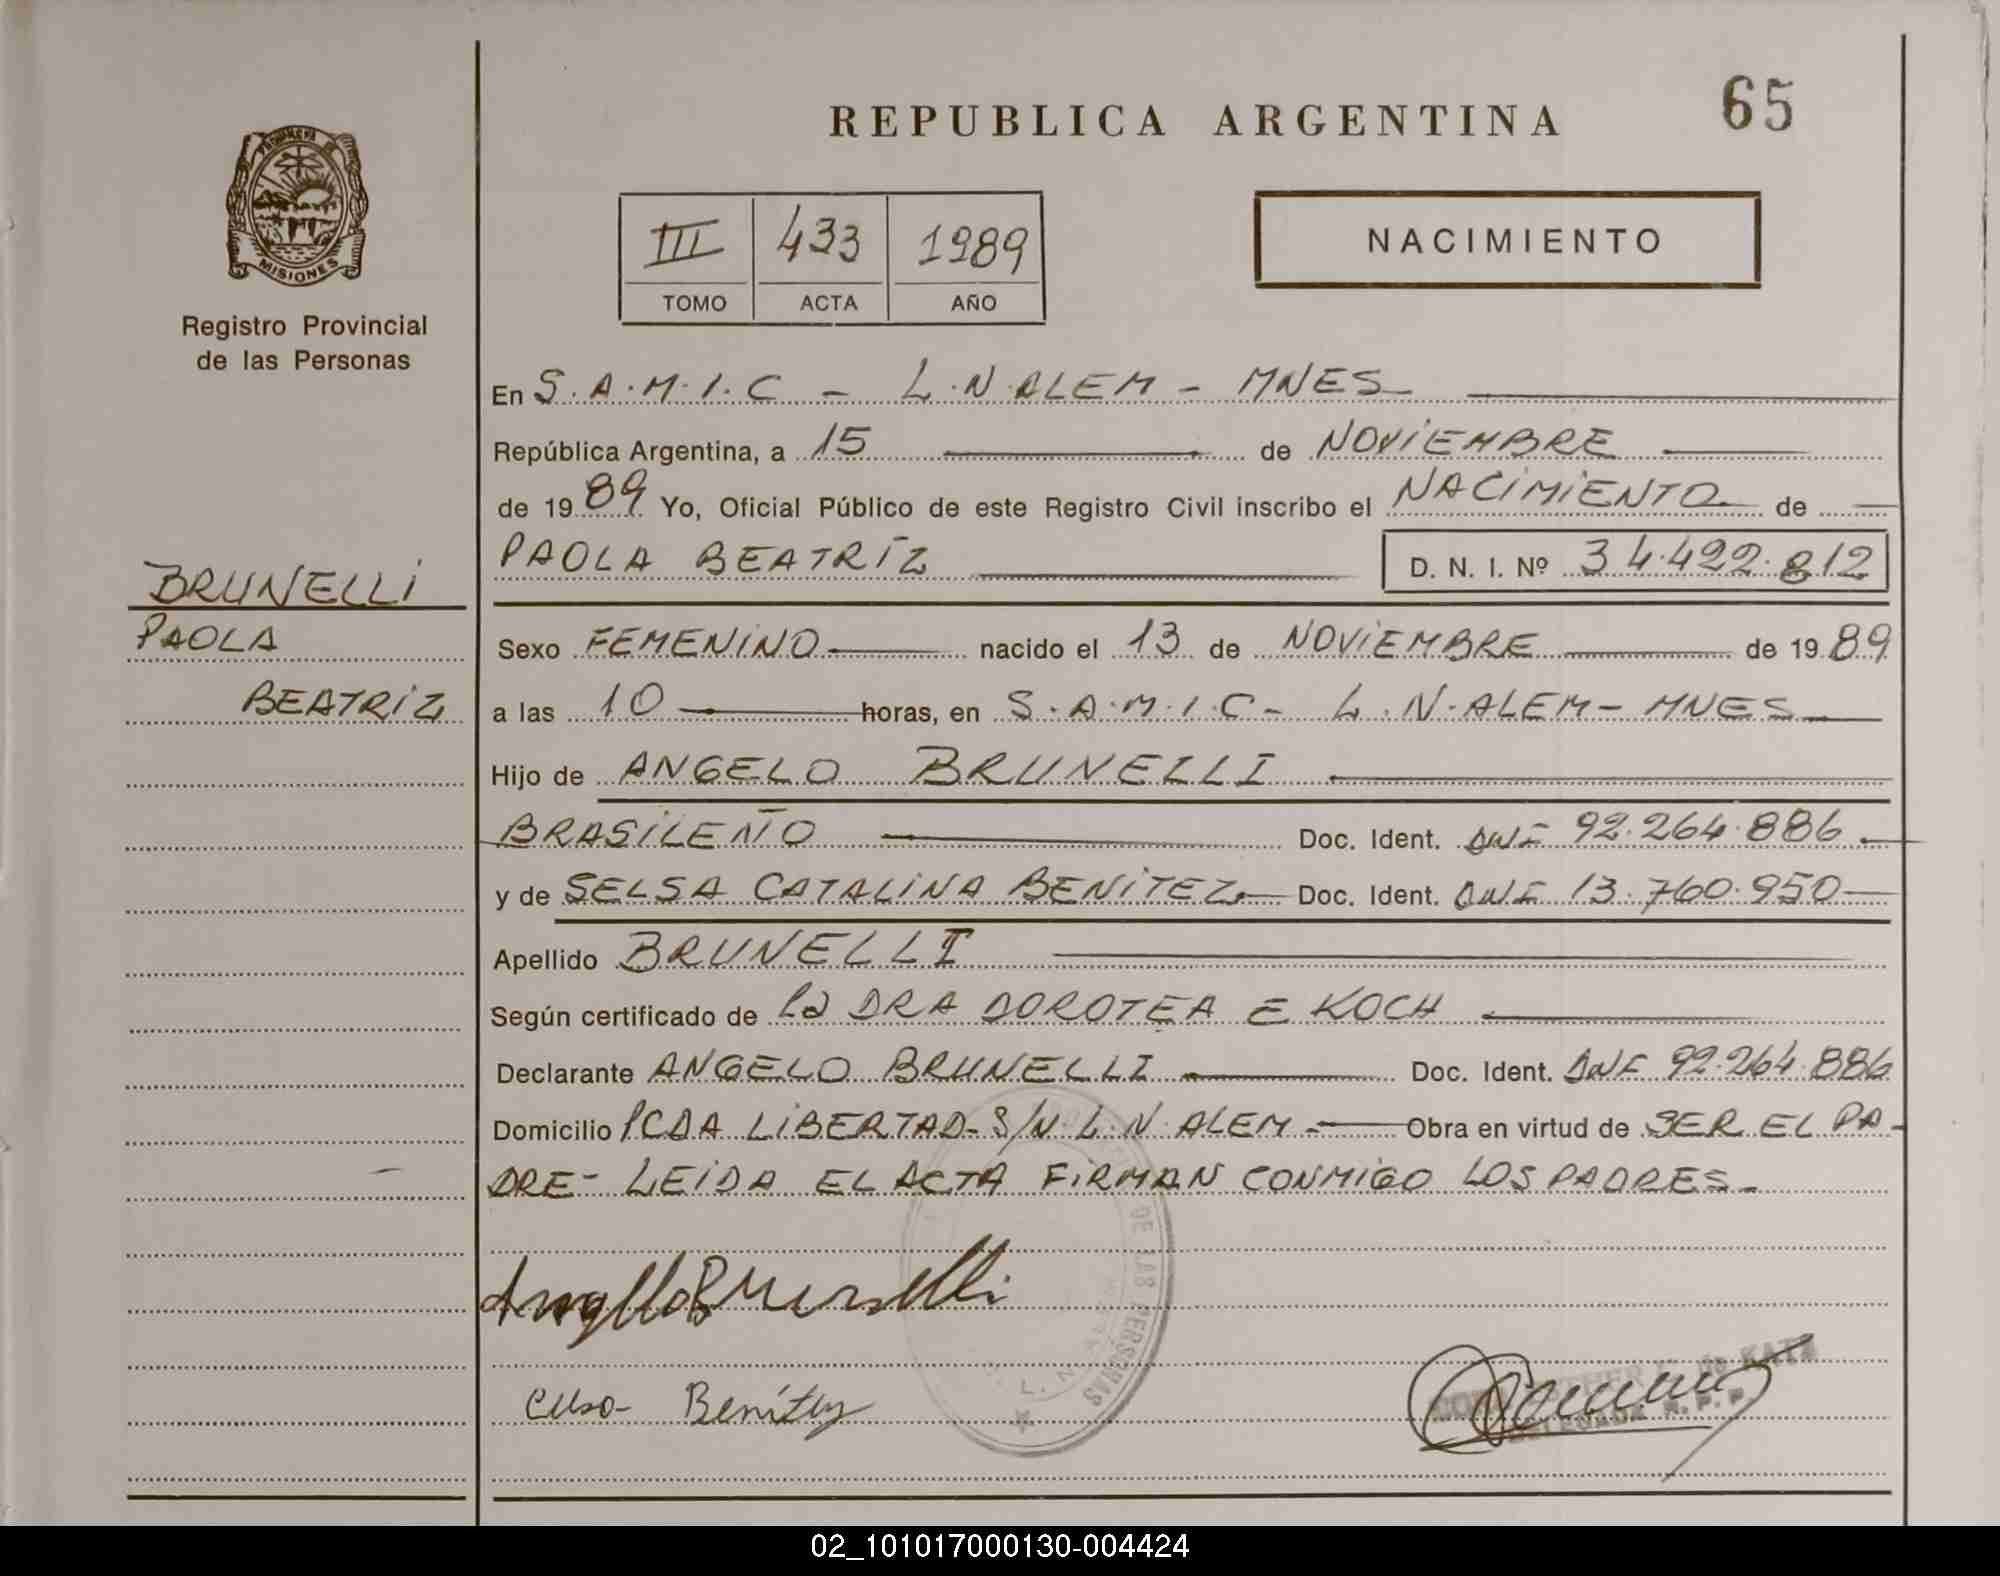 REPUBLICA ARGENTINA
65
PROVINCIA DE
MISIONES
Registro Provincial
de las Personas
III 433 1989
TOMO ACTA AÑO
NACIMIENTO
En S.A.M.I.C - L.N.ALEM - MNES
República Argentina, a 15 de NOVIEMBRE
de 1989 Yo, Oficial Público de este Registro Civil inscribo el NACIMIENTO de
PAOLA BEATRIZ D. N. I. Nº 34.422.812
BRUNELLI
PAOLA
BEATRIZ
Sexo FEMENINO nacido el 13 de NOVIEMBRE de 1989
a las 10 horas, en S.A.M.I.C - L.N.ALEM - MNES
Hijo de ANGELO BRUNELLI
BRASILEÑO Doc. Ident. DNI 92.264.886
y de SELSA CATALINA BENITEZ Doc. Ident. DNI 13.760.950
Apellido BRUNELLI
Según certificado de la DRA DOROTEA E KOCH
Declarante ANGELO BRUNELLI Doc. Ident. DNI 92.264.886
Domicilio PCDA LIBERTAD - S/N. L.N.ALEM - Obra en virtud de SER EL PA-
DRE - LEIDA EL ACTA FIRMAN CONMIGO LOS PADRES -
DE LAS PERSONAS
Angello Brunelli
Benítez
de KATZ
DELEGADA R.P.P.
02_101017000130-004424